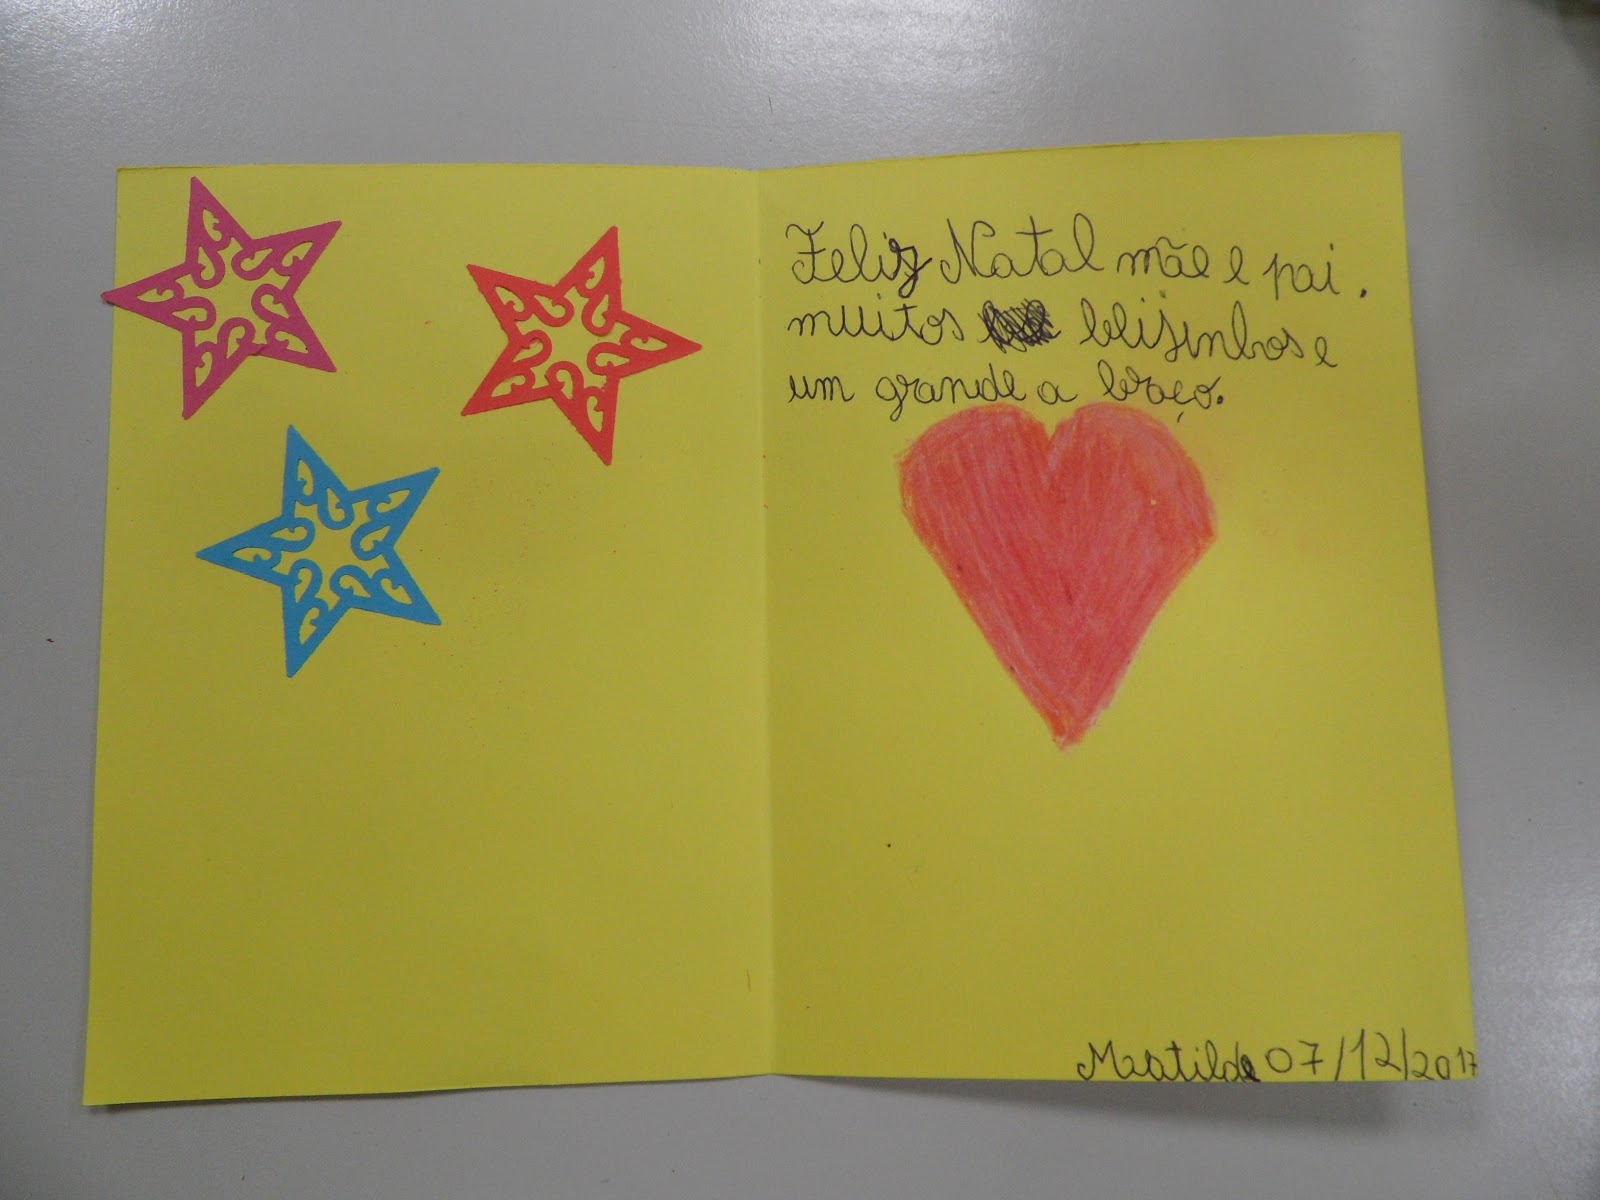 Feliz Natal mãe e pai.
muitos beijinhos e
um grande a braço.
Matilde 07/12/2017